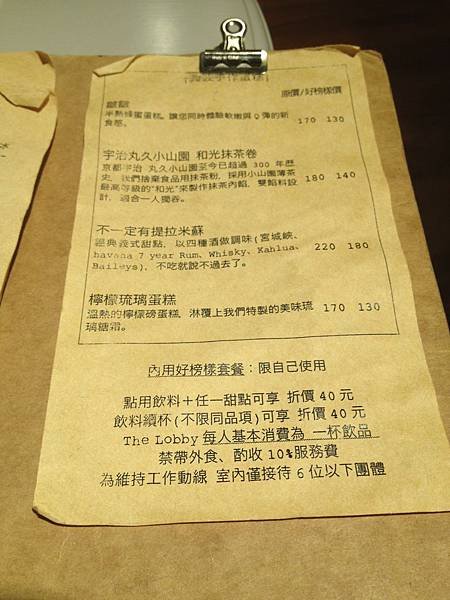 手作蛋糕
原價/好榜樣價
半熟蜂蜜蛋糕。讓您同時體驗軟嫩與Q彈的新
食感。
170 130
宇治丸久小山園 和光抹茶卷
京都宇治 丸久小山園至今已超過 300 年歷
史，我們捨棄食品用抹茶粉，採用小山園薄茶
最高等級的"和光"來製作抹茶內餡，雙餡料設
計，適合一人獨吞。
180 140
不一定有提拉米蘇
經典義式甜點，以四種酒做調味(宮城峽、
havana 7 year Rum、Whisky、Kahlua、
Baileys)，不吃就說不過去了。
220 180
檸檬琉璃蛋糕
溫熱的檸檬磅蛋糕，淋覆上我們特製的美味琉
璃糖霜。
170 130
內用好榜樣套餐：限自己使用
點用飲料＋任一甜點可享 折價 40 元
飲料續杯(不限同品項)可享 折價 40 元
The Lobby 每人基本消費為 一杯飲品
禁帶外食、酌收 10%服務費
為維持工作動線 室內僅接待 6 位以下團體